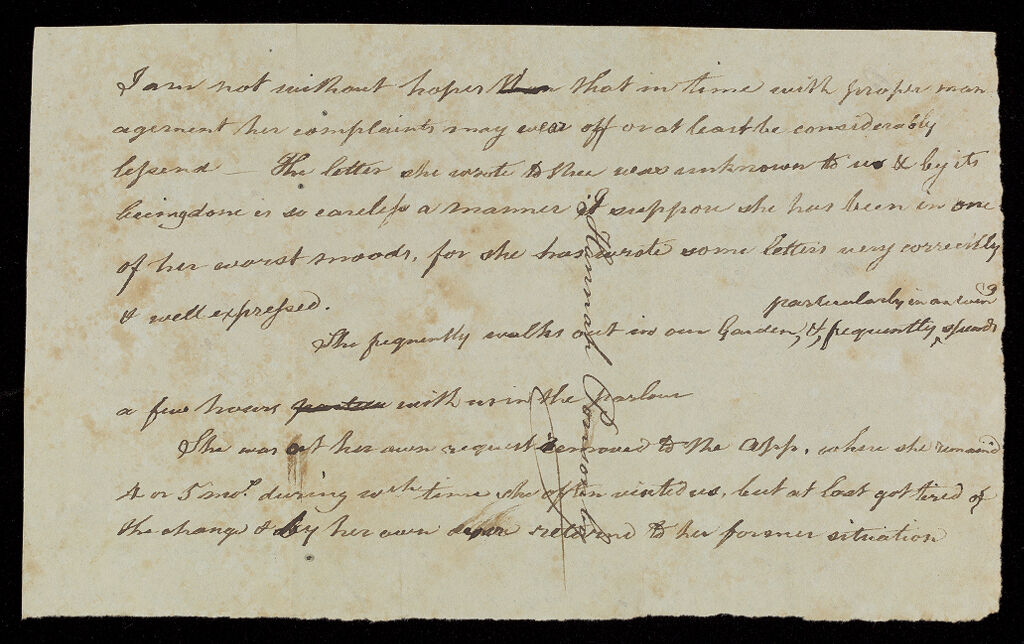 I am not without hopes then that in time with proper man
agement her complaints may wear off or at least be considerably
lessend — The letter she wrote to thee was unknown to us & by its
being done in so careless a manner I suppose she has been in one
of her worst moods, for she has wrote some letters very correctly
& well expressed.
particularly in an
She frequently walks out in our Garden, &, frequently, spends
a few hours with us in the parlour
She was at her own request removed to the App, where she remaind
4 or 5 mos. during wch time she often visited us, but at last got tired of
the change & by her own desire returnd to her former situation
Hannah